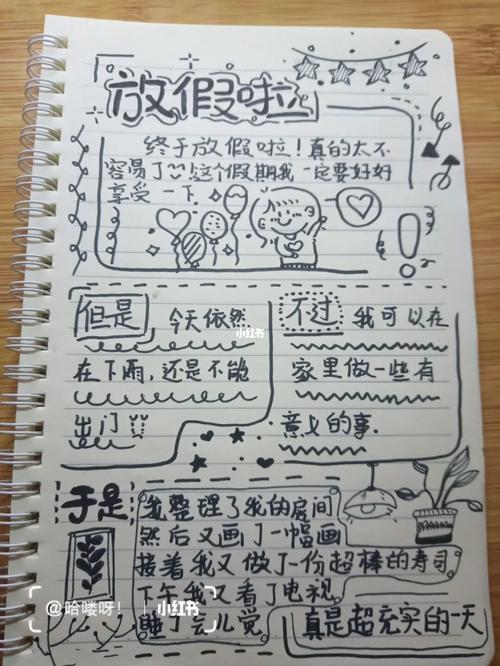 放假啦
终于放假啦！真的太不
容易了！这个假期我一定要好好
享受一下.
但是
今天依然
在下雨,还是不能
出门
不过
我可以在
家里做一些有
意义的事.
小红书
于是
我整理了我的房间
然后又画了一幅画
接着我又做了一份超棒的寿司
下午我又看了电视
睡了会儿觉
真是超充实的一天
@哈喽呀！ | 小红书